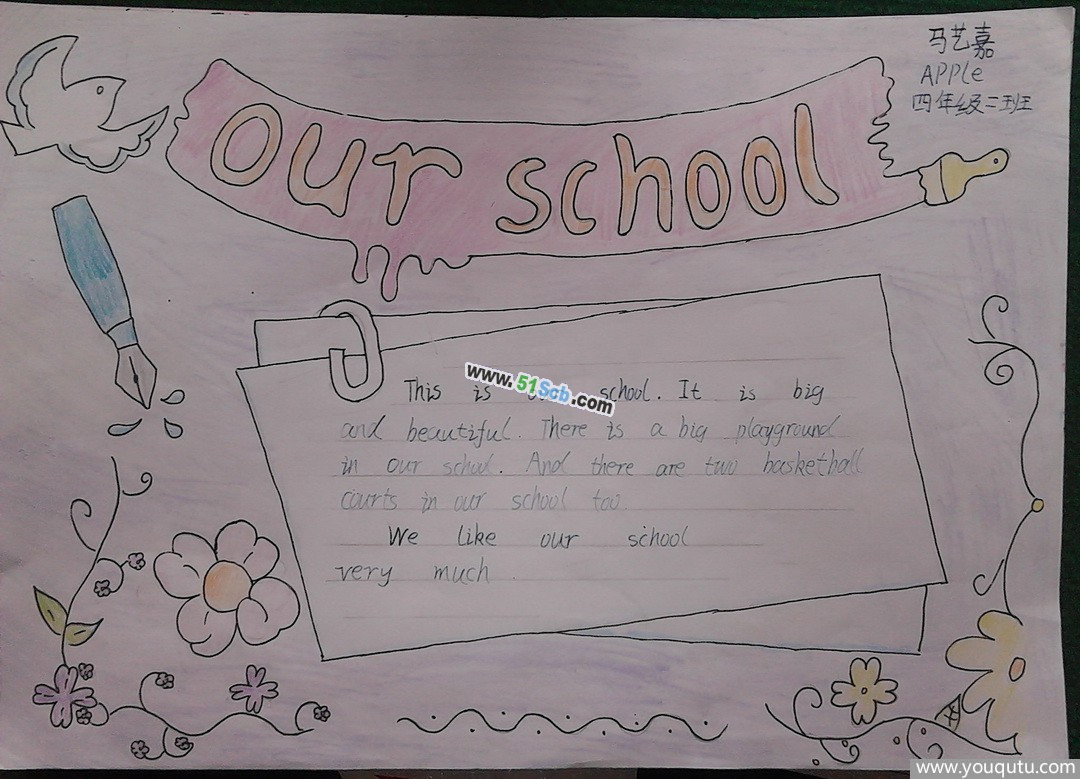 马艺嘉
APPle
四年级二班
our school
www.51Scb.com
This is school. It is big
and beautiful. There is a big playground
in our school. And there are two basketball
courts in our school too.
We like our school
very much.
www.youqutu.com